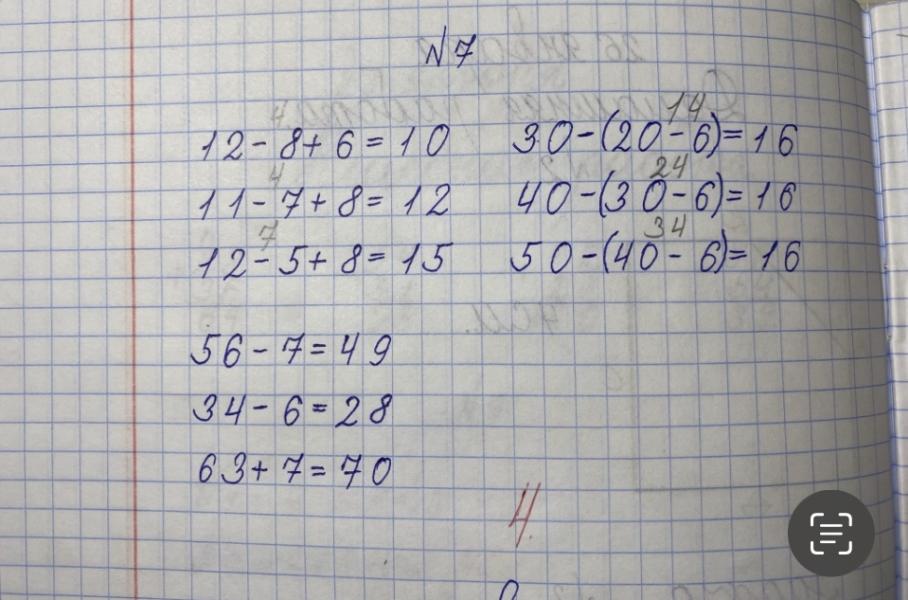 №7
4 14
12 - 8 + 6 = 10 30 - (20 - 6) = 16
4 24
11 - 7 + 8 = 12 40 - (30 - 6) = 16
7 34
12 - 5 + 8 = 15 50 - (40 - 6) = 16
56 - 7 = 49
34 - 6 = 28
63 + 7 = 70
4